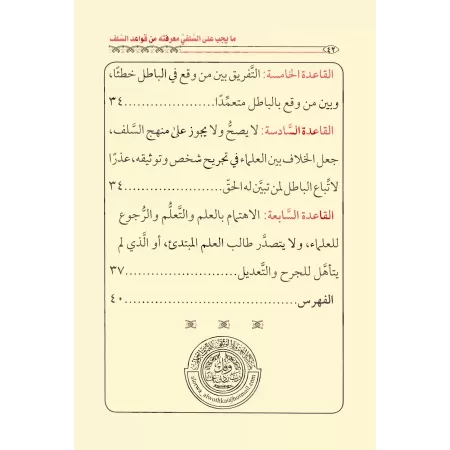 ما يجب على السلفي معرفته من قواعد السلف
٤٢
القاعدة الخامسة: التَّفريق بين من وقع في الباطل خطئًا،
وبين من وقع بالباطل متعمِّدًا.....................٣٤
القاعدة السَّادسة: لا يصحُّ ولا يجوز علىٰ منهج السَّلف،
جعل الخلاف بين العلماء في تجريح شخص وتوثيقه، عذرًا
لاتِّباع الباطل لمن تبيَّن له الحقّ.................٣٤
القاعدة السَّابعة: الاهتمام بالعلم والتَّعلُّم والرُّجوع
للعلماء، ولا يتصدَّر طالب العلم المبتدئ، أو الَّذي لم
يتأهَّل للجرح والتَّعديل.....................٣٧
الفهرس........................................٤٠